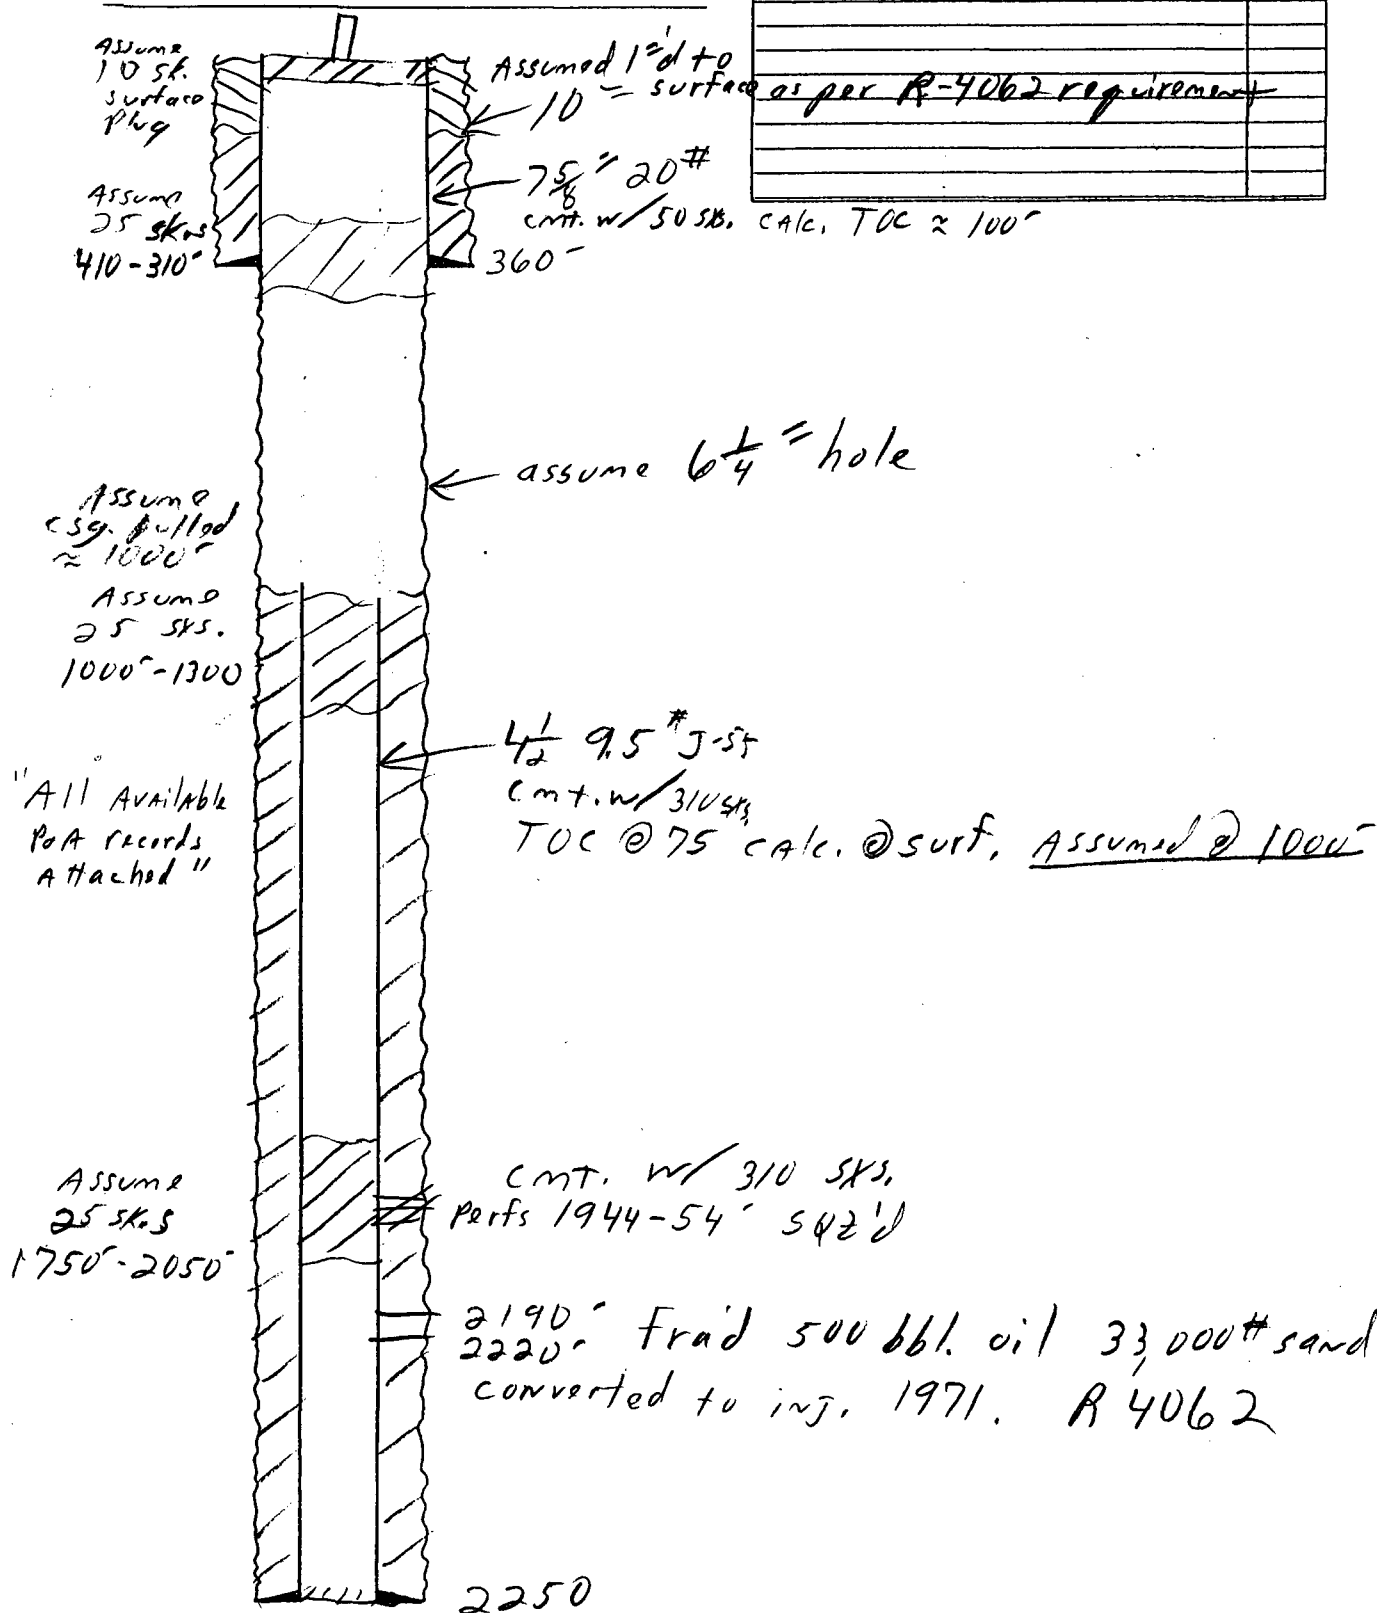 Assume
10 sk.
surface
Plug
Assumed 1"'d to
surface as per R-4062 requirement
10"
7 5/8" 20#
cmt. w/ 50 sks. CAlc. TOC ≈ 100'
Assume
25 sks
410-310'
360'
assume 6 1/4" hole
Assume
csg. pulled
≈ 1000'
Assume
25 sxs.
1000'-1300
4 1/2 9.5# J-55
Cmt. w/ 310 sxs
TOC @ 75 CAlc. @ surf. Assumed @ 1000'
"All AvAilAble
PoA records
Attached"
Assume
25 sks
1750'-2050'
Cmt. w/ 310 sxs.
Perfs 1944-54' sqz'd
2190'
2220' Frac'd 500 bbl. oil 33,000# sand
converted to inj. 1971. R 4062
2250